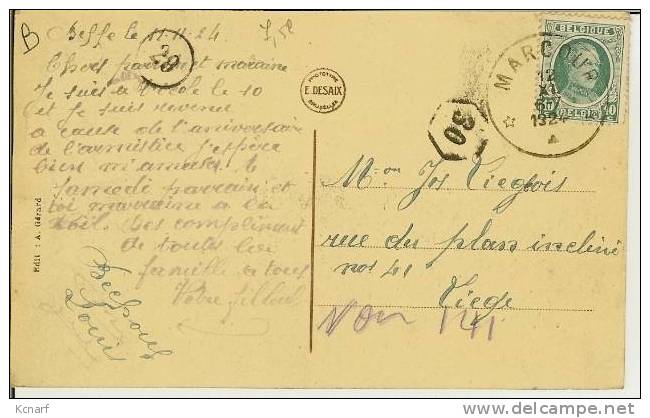 B
Beffe le 11-11-24
7,50
29
Chers parrain et marraine
Je suis à le 10
et je suis revenu
a cause de l'aniversaire
de l'armistice j'espère
bien m'amuser
samedi parrain et
toi marraine a la
Des compliments
de toute la
famille a tous
Votre filleul
Louis
Edit : A. Gérard
PHOTOTYPIE
E. DESAIX
BRUXELLES
30
MARCOUR
12
XI
1924
BELGIQUE
10 BELGIË 10
Mon Jos
rue du plan incliné
nos 41
Liege
Non 141
Kcnarf
delcampe.net